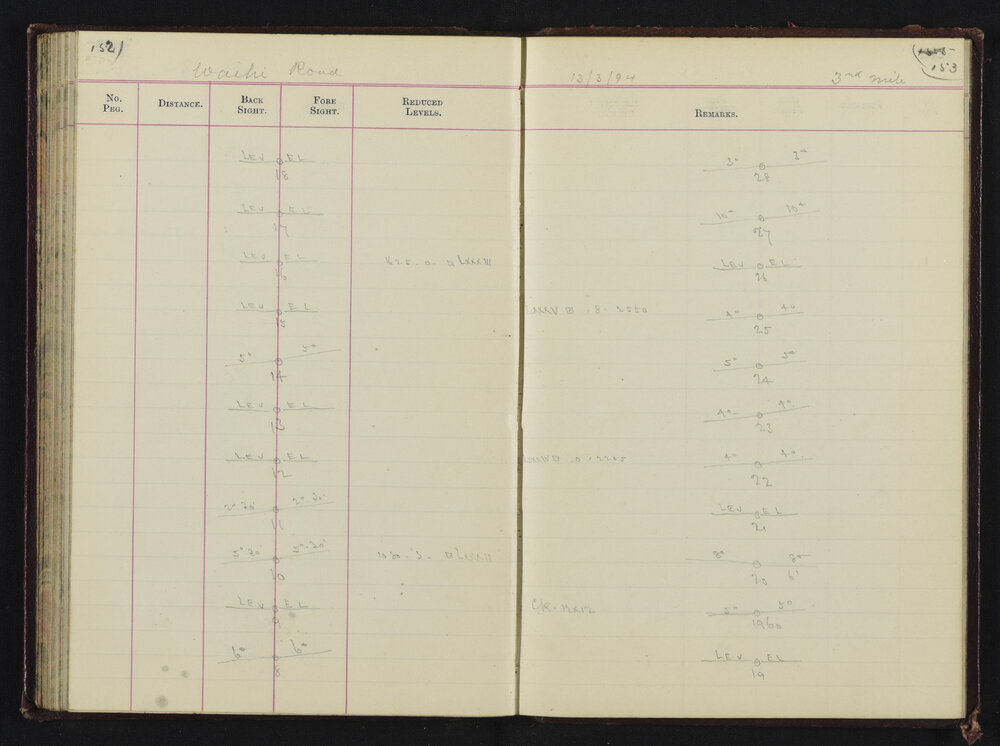 152)
Waihi Road
No. Peg. Distance. Back Sight. Fore Sight. Reduced Levels.
LEV EL
18
LEV EL
17
LEV EL
16
1625 - 0 - LXXXIII
LEV EL
15
5° 5°
14
LEV EL
13
LEV EL
12
2°.20' 2°.20'
11
5°.20' 5°.20'
10
1030 - 3 - LXXXII
LEV EL
9
6° 6°
8
153
13/3/94 3rd mile
Remarks.
3° 3°
28
10° 10°
27
LEV EL
26
LXXXV . 8 . 2550
4° 4°
25
5° 5°
24
4° 4°
23
0 . 2205
4° 4°
22
LEV EL
21
8° 8°
20
12x12
5° 5°
1960
LEV EL
19